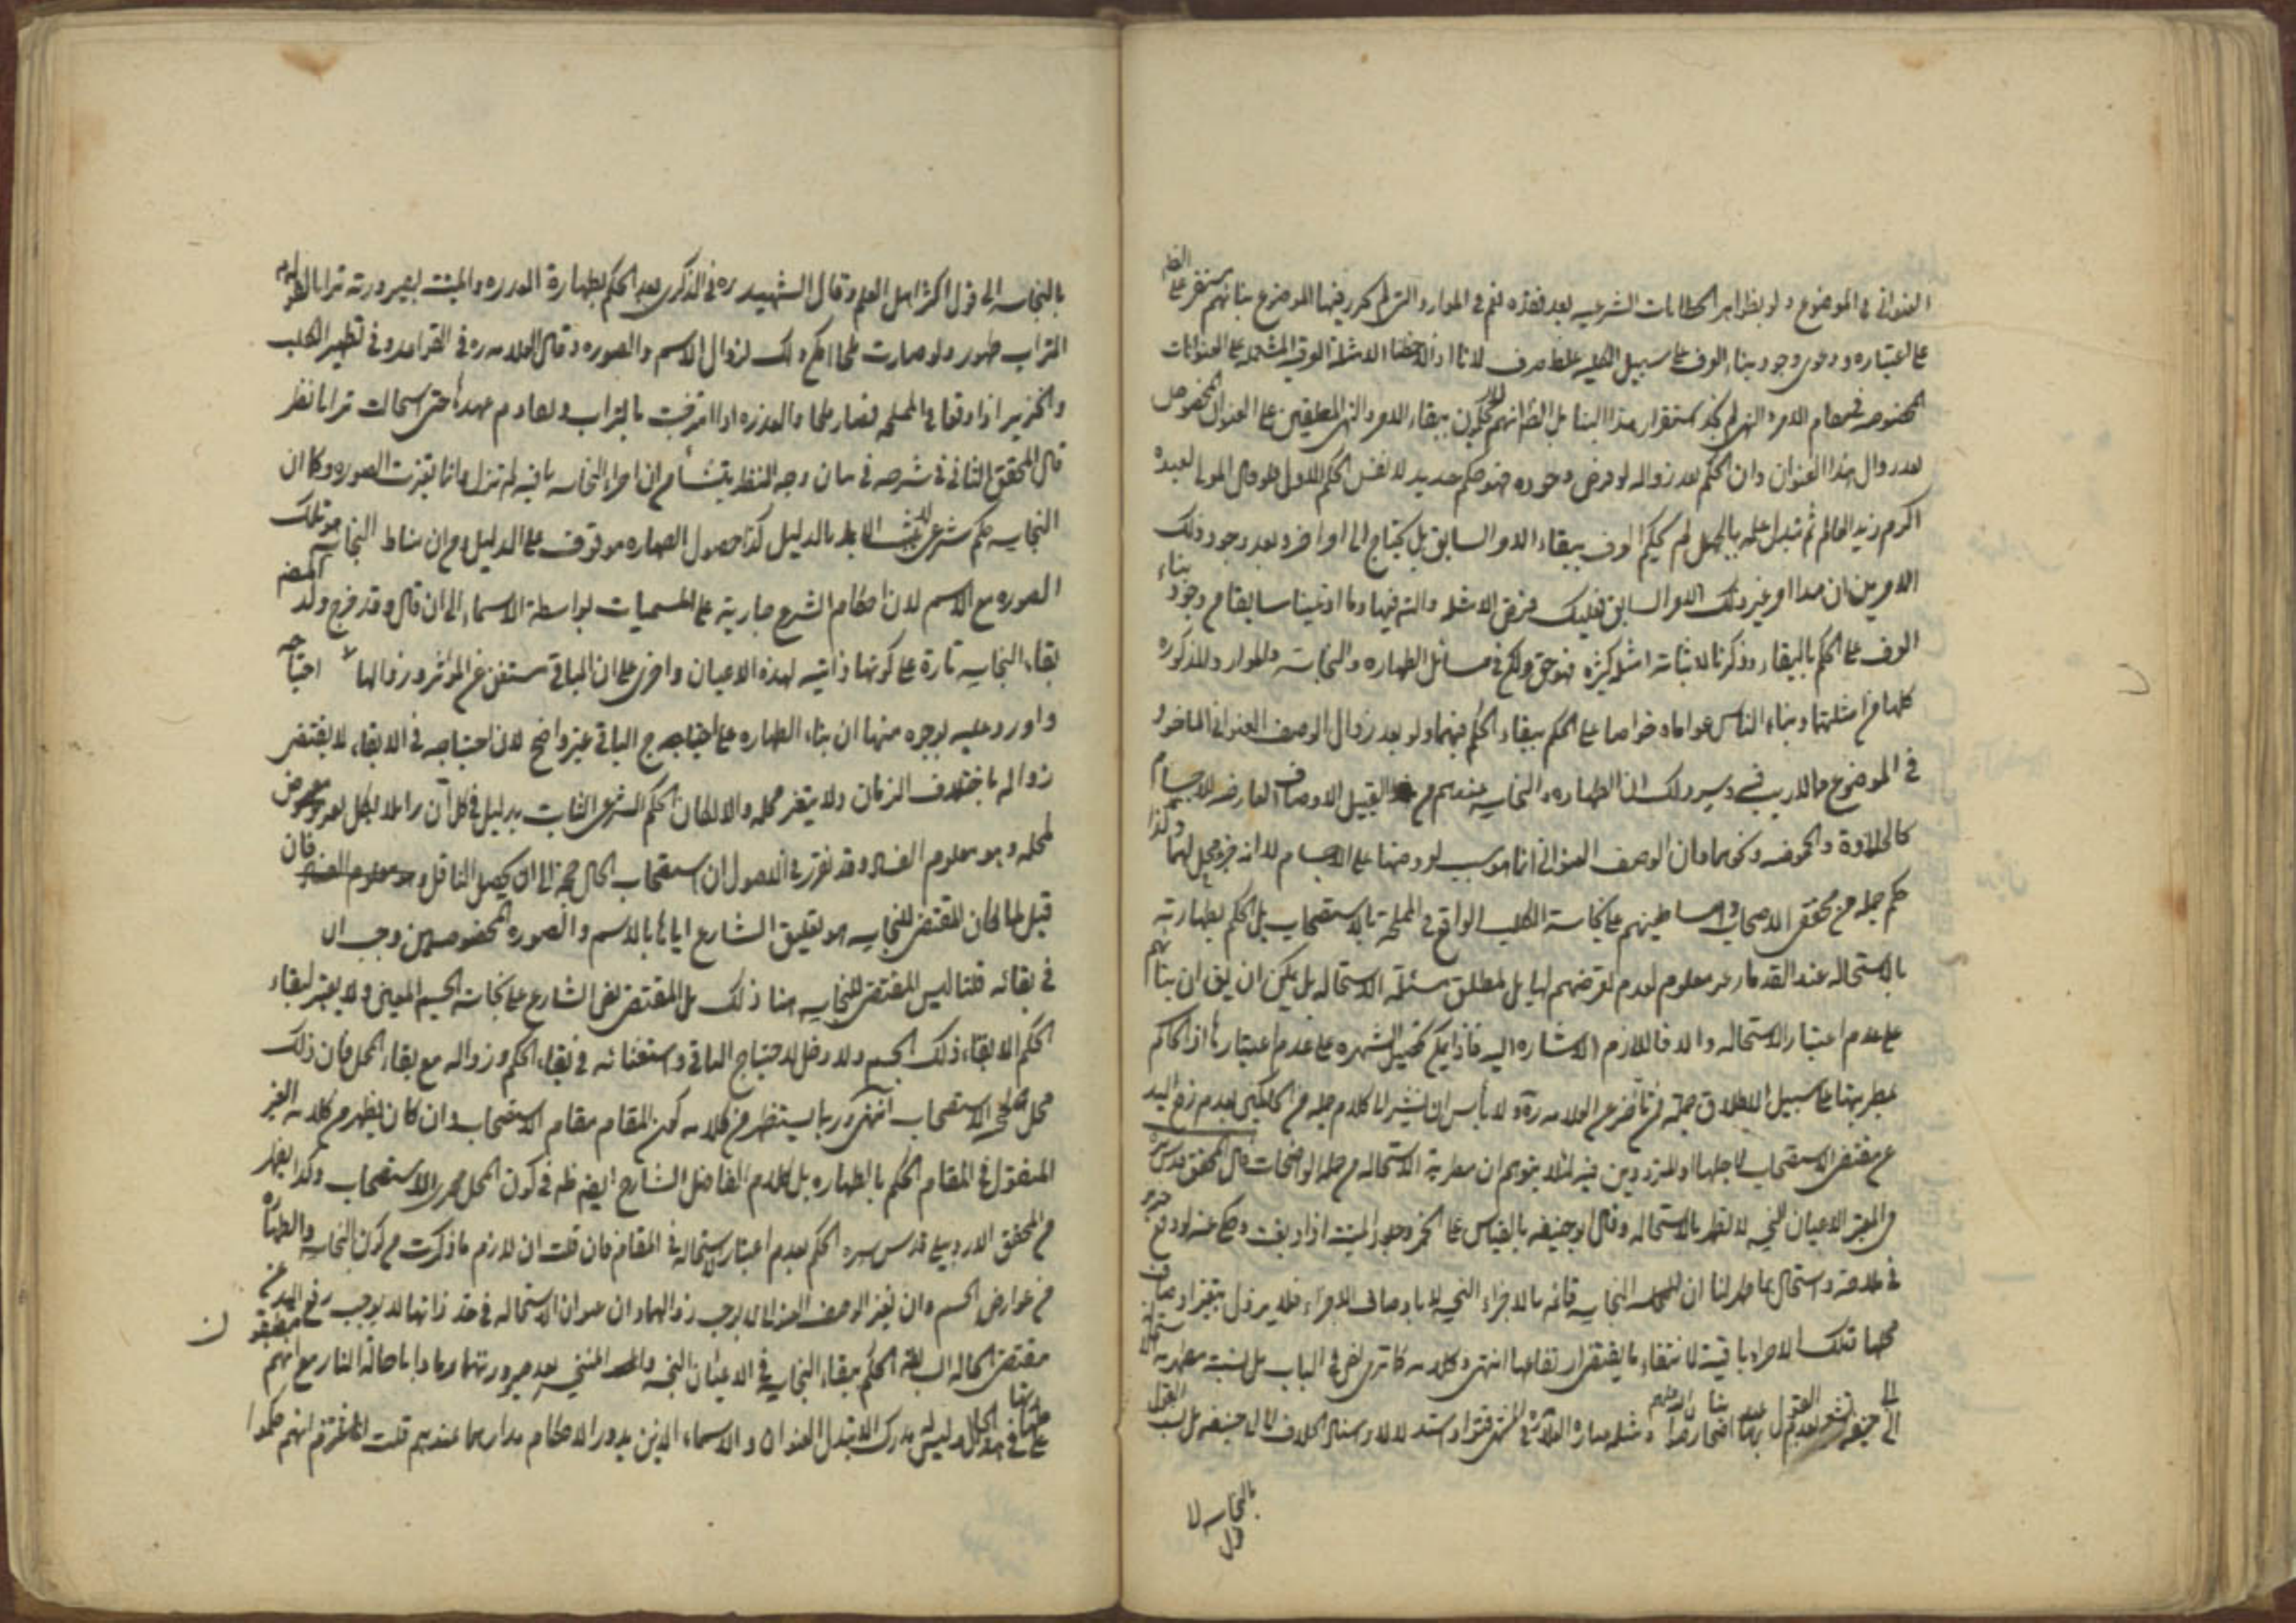 العنواني في الموضوع ولو بظواهر الخطابات الشرعيه بعد فقده نعم في الموارد التي لم يحرر فيها الموضوع بنائهم مستقر على
على اعتباره ودعوى وجود بناء العرف على سبيل الكليه غلط صرف لانا اذا لاحظنا الامثلة العرفية المشتمله على العنوانات
المخصوصه في مقام الامر والنهي لم نجد استقرار هذا البناء بل الظ انهم يحكمون ببقاء الامر والنهي المعلقين على العنوان المخصوص
بعد زوال هذا العنوان وان الحكم بعد زواله لو فرض وجوده فهو حكم جديد لا نفس الحكم الاول فلو قال المولى لعبده
اكرم زيد العالم ثم تبدل علمه بالجهل لم يحكم العرف ببقاء الامر السابق بل يحتاج الى امر اخر وبعد وجود ذلك
الامر من ان هذا امر غير ذلك الامر السابق فعليك بفرض الامثله والتدبر فيها وما ادعينا سابقا من وجود بناء
العرف على الحكم بالبقاء وذكرنا لاثباته امثله كثيره فهو حق ولكن في مسائل الطهاره والنجاسة والموارد المذكوره
كلها من امثلتها وبناء الناس عواما وخواصا على الحكم ببقاء الحكم فيهما ولو بعد زوال الوصف العنواني الماخوذ
في الموضوع مما لا ريب فيه وسر ذلك ان الطهاره والنجاسه عندهم من قبيل الاوصاف العارضه للاجسام
كالحلاوة والحموضه ونحوهما وان الوصف العنواني انما هو سبب لعروضها على الاجسام لا انه جزء محل لهما ولذا
حكم جمله من محققي الاصحاب واساطينهم على نجاسة الكلب الواقع في المملحة بالاستصحاب بل الحكم بطهارته
بالاستحاله عند القدماء غير معلوم لعدم تعرضهم لها بل لمطلق مسئلة الاستحاله بل يمكن ان يق ان بنائهم
على عدم اعتبار الاستحاله والا فاللازم الاشاره اليه فاذا يمكن تحصيل الشهره على عدم اعتبارها اذ الحاكم
بمطهريتها على سبيل الاطلاق جملة من تاخر عن العلامه ره ولا بأس ان نشير الى كلام جمله من الحاكمين بعدم رفع اليد
عن مقتضى الاستصحاب لاجلها او المترددين فيه لئلا يتوهم ان مطهرية الاستحاله من جمله الواضحات قال المحقق قدس سره
في المعتبر الاعيان النجسه لا تطهر بالاستحاله وقال ابو حنيفه بالقياس على الخمر وجلود الميتة اذا دبغت وحكى عنه لو وقع خنزير
في ملاحة واستحال ملحا طهر لنا ان النجاسه قائمه بالاجزاء النجسه لا باوصاف الاجزاء فلا يزول بتغير اوصاف
محلها وتلك الاجزاء باقية لانتفاء ما يقتضي ارتفاعها انتهى وكلامه كما ترى نص في الباب بل نسبة مطهرية
الى ابي حنيفه
بالنجاسه لا
قول
بالنجاسه الى قول اكثر اهل العلم وقال الشهيد ره في الذكرى بعد الحكم بطهارة العذره والميتة بصيرورته ترابا لعموم
التراب طهور ولو صارت ملحا امكن ذلك لزوال الاسم والصوره وقال العلامه ره في القواعد وفي تطهير الكلب
والخنزير اذا وقعا في المملحه فصارا ملحا والعذره اذا امتزجت بالتراب وتقادم عهدها حتى استحالت ترابا نظر
قال المحقق الثاني في شرحه في بيان وجه النظر ينشأ من ان اجزاء النجاسه باقيه لم تزل وانما تغيرت الصوره وكما ان
النجاسه حكم شرعي لا يثبت الا بالدليل كذا حصول الطهاره موقوف على الدليل ومن ان مناط النجاسه هو تلك
الصوره مع الاسم لان احكام الشرع جارية على المسميات بواسطة الاسماء الى ان قال وقد خرج ولد المصنف
بقاء النجاسه تارة على كونها ذاتيه لهذه الاعيان واخرى على ان الباقي مستغن عن المؤثر وزوالها على احتياجه
واورد عليه بوجوه منها ان بناء الطهاره على احتياج الباقي غير واضح لان احتياجه في الابقاء لا يقتضي
زواله باختلاف الزمان ولا بتغير محله والا لكان الحكم الشرعي الثابت بدليل في كل آن زائلا بكل عروض
لمحله وهو معلوم الفساد وقد تقرر في الاصول ان استصحاب الحال حجة الى ان يحصل الناقل فان
قيل لما كان المقتضى للنجاسه هو تعليق الشارع اياها بالاسم والصوره المخصوصين وجب ان
في بقائه قلنا ليس المقتضى للنجاسه هنا ذلك بل المقتضى نص الشارع على نجاسة الجسم المعين ولا يعتبر لبقاء
الحكم الا بقاء ذلك الجسم ولا دخل لاحتياج الباقي واستغنائه في بقاء الحكم وزواله مع بقاء المحل فان ذلك
محل الاستصحاب انتهى وربما يستظهر من كلامه كون المقام مقام الاستصحاب وان كان يظهر من كلامه الغير
المنقول في المقام الحكم بالطهاره بل كلام الفاضل الشارح ايضا ظ في كون المحل مجرى الاستصحاب وكذا يظهر
من المحقق الاردبيلي قدس سره الحكم بعدم اعتبار الاستحاله في المقام فان قلت ان لازم ما ذكرت من كون النجاسه والطهاره
من عوارض الجسم وان تغير الوصف العنواني لا يوجب زوالهما وان عنوان الاستحاله في حد ذاتها لا يوجب رفع اليد عن
مقتضى الحاله السابقه الحكم ببقاء النجاسه في الاعيان النجسه والمتنجسه بعد صيرورتها رمادا باحالة النار مع انهم
على وليس مدرك الا تبدل العنوان والاسماء الذين يدور الاحكام مدارهما عندهم قلت انهم حكموا